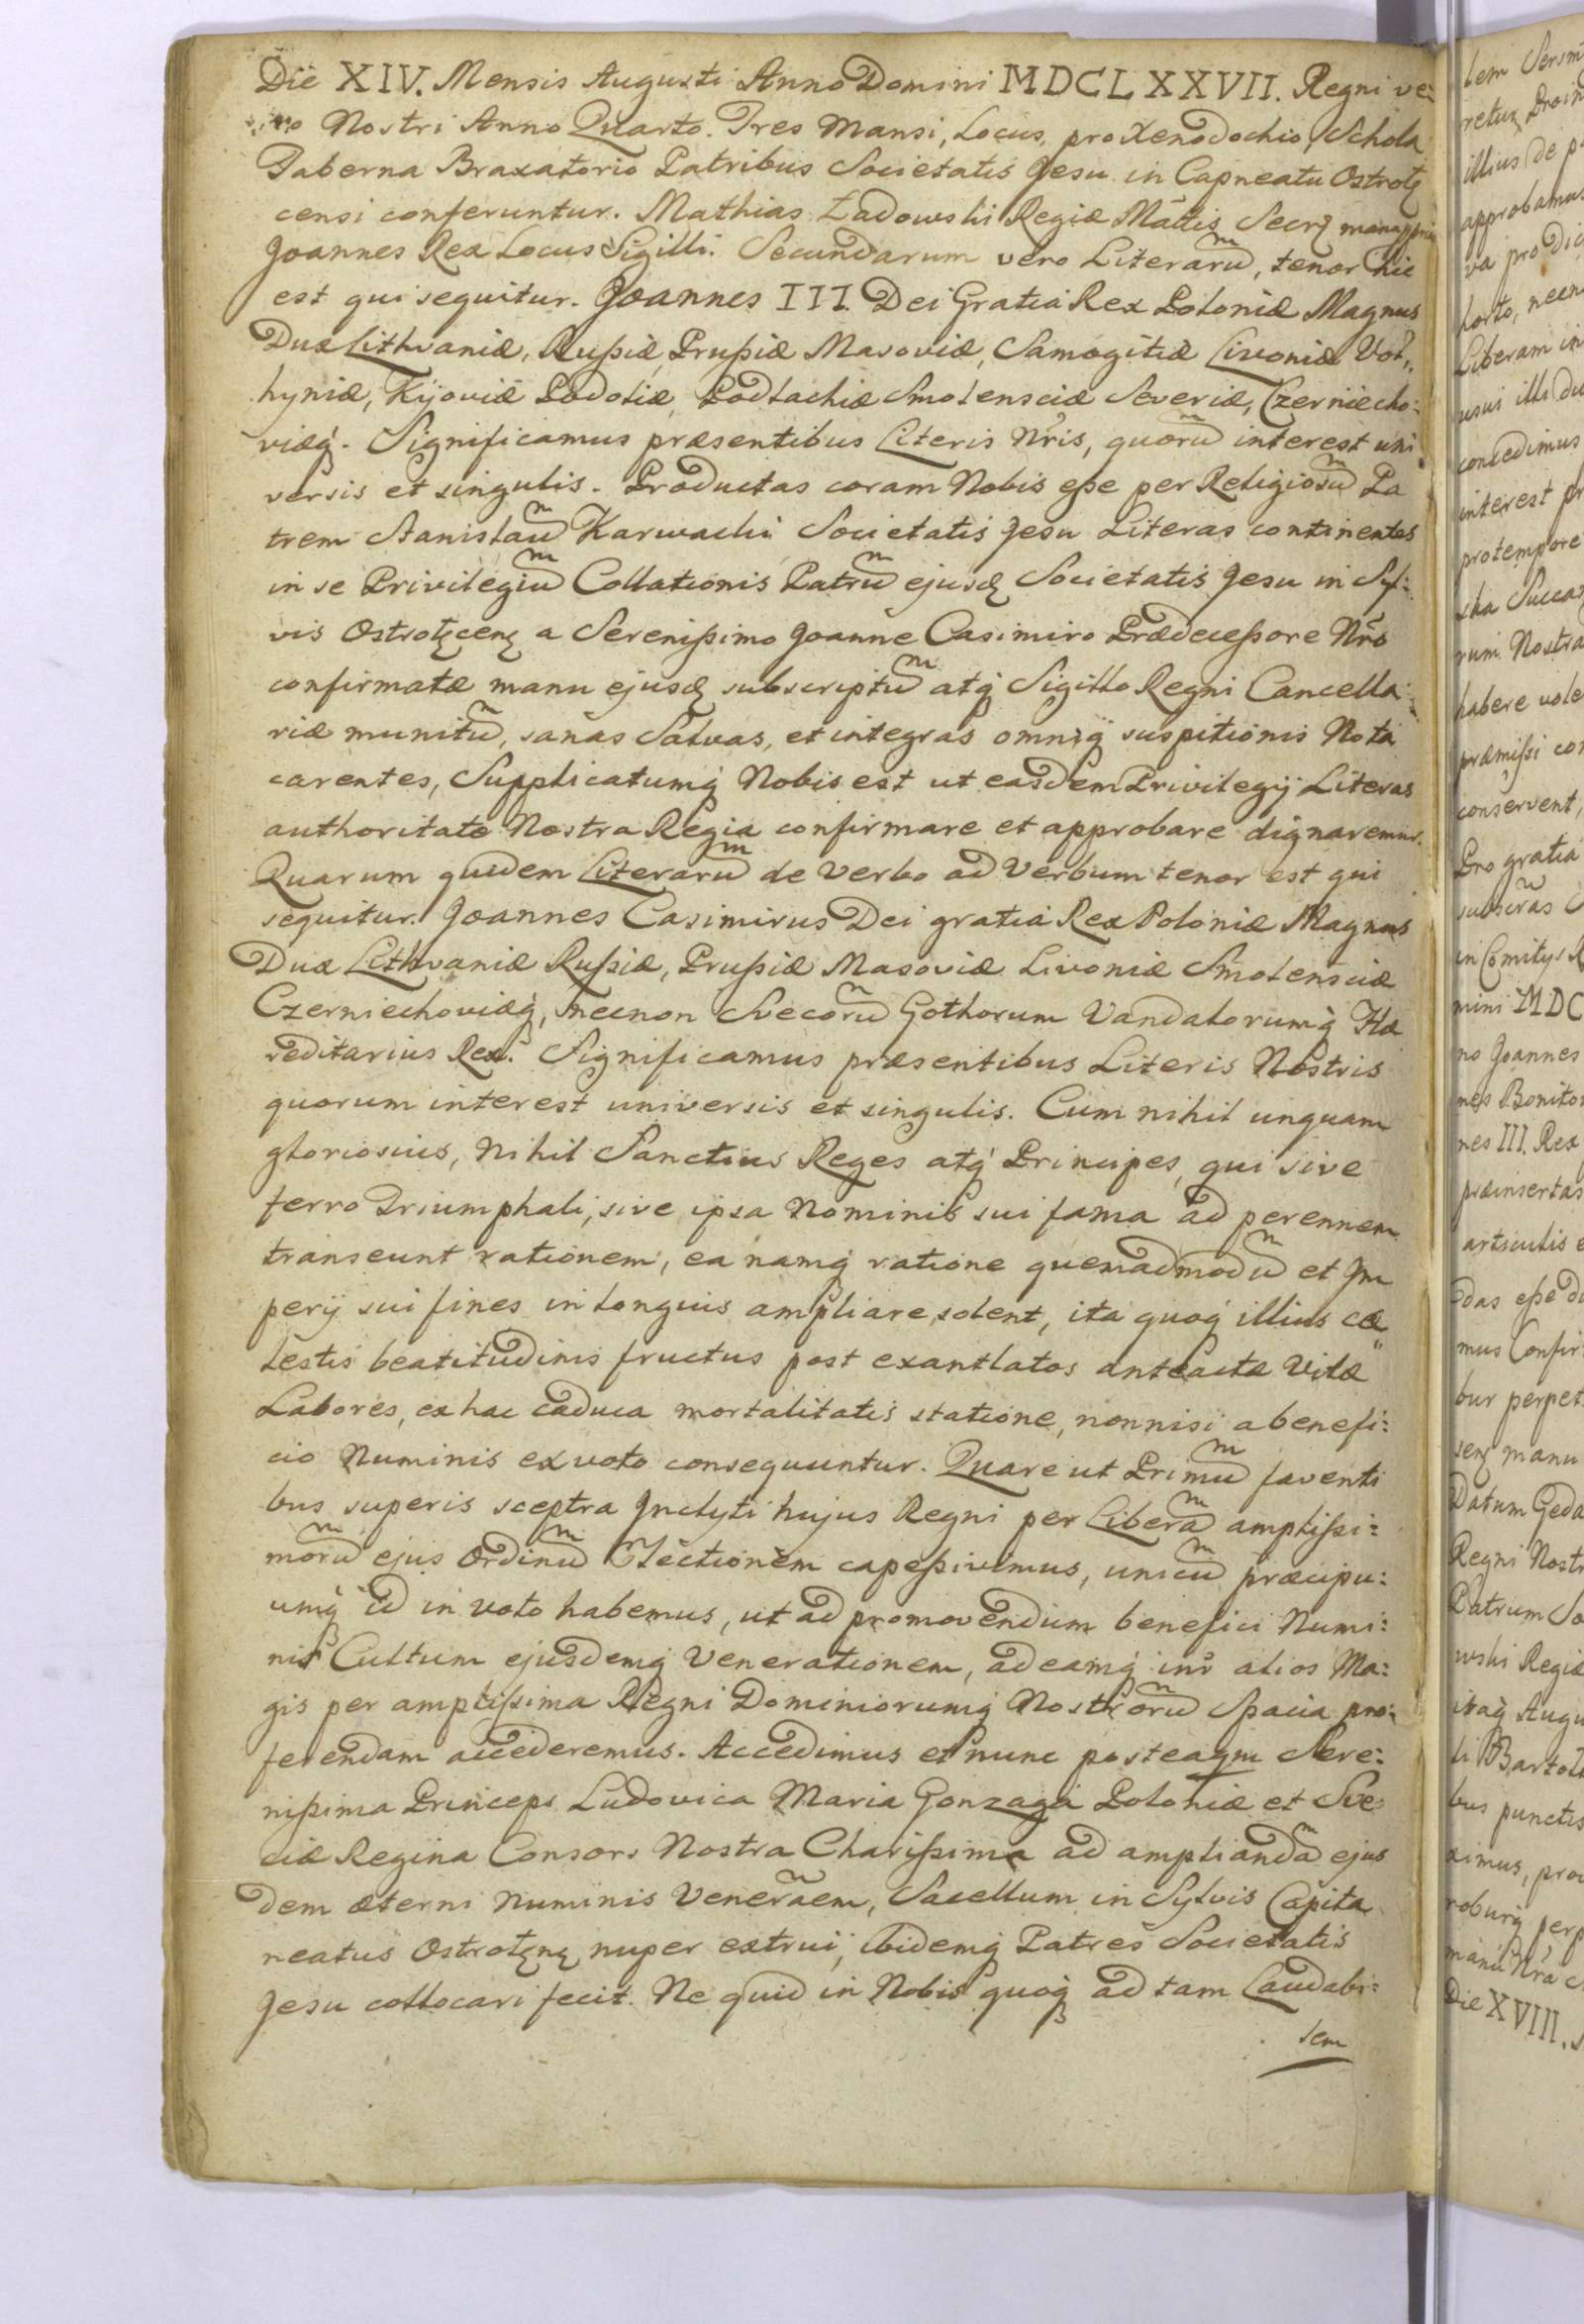 Die XIV. Mensis Augusti Anno Domini MDCLXXVII. Regni ve:
ro Nostri Anno Quarto. Tres Mansi, Locus, pro Xenodochio, Schola
Taberna Braxatorio Patribus Societatis Jesu in Capneatu Ostrołę
censi conferuntur. Mathias Ładowski Regiæ Mattis Secrę manu ppria
Joannes Rex Locus Sigilli. Secundarum vero Literarũ, tenor hic
est qui sequitur. Joannes III. Dei Gratia Rex Poloniæ Magnus
Dux Lithvaniæ, Rußiæ, Prußiæ Masoviæ, Samogitiæ Livoniæ Vol,,
hyniæ, Kijoviæ Podoliæ, Podlachiæ Smolensciæ Severiæ, Czerniecho:
viæq́. Significamus præsentibus Literis Nris, quorũ interest uni
versis et singulis. Productas coram Nobis eße per Religiosũ Pa
trem Stanislaũ Karwacki Societatis Jesu Literas continentes
in se Privilegiũ Collationis Patrũ ejusdę Societatis Jesu in Syl:
vis Ostrołęcenę a Serenißimo Joanne Casimiro Prædeceßore Nro
confirmatæ manu ejusdę subscriptũ atq́ Sigillo Regni Cancella:
riæ munitũ, sanas Salvas, et integras omniq́ suspitionis Nota
carentes, Supplicatumq́ Nobis est ut easdem Privilegij Literas
authoritate Nostra Regia confirmare et approbare dignaremur.
Quarum quidem Literarũ de verbo ad verbum tenor est qui
sequitur. Joannes Casimirus Dei gratia Rex Poloniæ Magnus
Dux Lithvaniæ Rußiæ, Prußiæ Masoviæ Livoniæ Smolensciæ
Czerniechoviæq́, necnon Svecorũ Gothorum Vandalorumq́ Hæ
reditarius Rex. Significamus præsentibus Literis Nostris
quorum interest universis et singulis. Cum nihil unquam
gloriosius, Nihil Sanctius Reges atq́ Principes, qui sive
ferro Triumphali, sive ipsa Nominis sui fama ad perennem
transeunt rationem, ea namq́ ratione quemadmodũ et Im
perij sui fines in longuis ampliare solent, ita quoq́ illius cæ
lestis beatitudinis fructus post exantlatos anteactæ Vitæ
Labores, ex hac caduca mortalitatis statione, nonnisi a benefi:
cio Numinis ex voto consequuntur. Quare ut Primũ faventi
bus superis sceptra Inclyti hujus Regni per Liberã amplißi:
morũ ejus Ordinũ Electionem capeßivimus, unicũ præcipu:
umq́ id in voto habemus, ut ad promovendum benefici Numi:
nis Cultum ejusdemq́ Venerationem, ad eamq́ inr alios Ma:
gis per amplißima Regni Dominiorumq́ Nostrorũ Spacia pro:
ferendam accederemus. Accedimus et nunc posteaqm Sere:
nißima Princeps Ludovica Maria Gonzaga Poloniæ et Sve
ciæ Regina Consors Nostra Charißima ad ampliandã ejus
dem æterni Numinis Venerãem, Sacellum in Sylvis Capita
neatus Ostrołęnę nuper extrui, ibidemq́ Patres Societatis
Jesu collocari fecit. Ne quid in Nobis quoq́ ad tam Laudabi:
lem
lem
illius de
approbamus
va pro
horto, necn
Liberam in
usui illi du
concedimus
interest
pro tempore
rum Nostra
habere vole
præmißi con
conservent,
Pro gratia
in Comitijs R
mini MDC
no Joannes
nes III. Rex
præinsertas
articulis e
das eße
mus Confir
bur perpet
manu
Datum Geda
Regni Nostr
Patrum So
wski Regiæ
Augu
li Bartol
bus punctis
ximus, pro
roburq́ perp
manu Nra
Die XVIII.